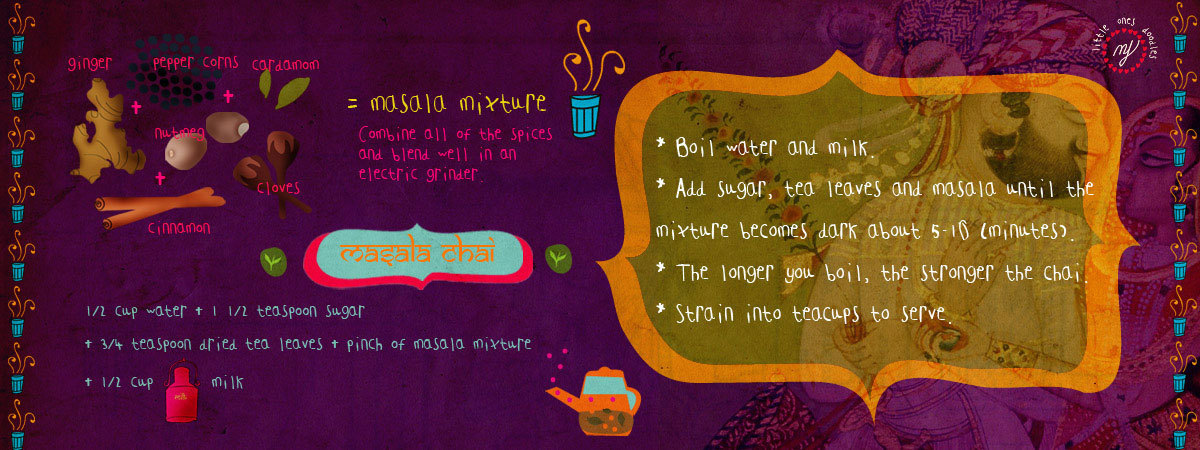 little ones doodles
ginger
pepper corns
cardamom
nutmeg
cloves
cinnamon
= masala mixture
Combine all of the spices
and blend well in an
electric grinder.
masala chai
1/2 cup water + 1 1/2 teaspoon sugar
+ 3/4 teaspoon dried tea leaves + pinch of masala mixture
+ 1/2 cup milk
* Boil water and milk.
* Add sugar, tea leaves and masala until the
mixture becomes dark about 5-10 (minutes).
* The longer you boil, the stronger the chai.
* Strain into teacups to serve.